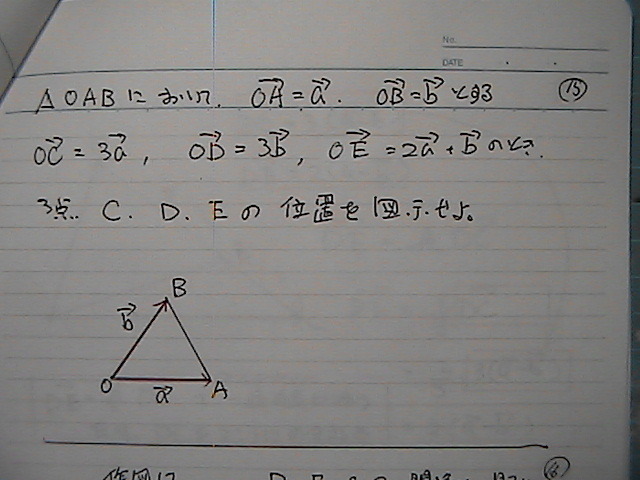 No.
DATE
△OABにおいて. OA→=a→. OB→=b→とする ⑮
OC→=3a→, OD→=3b→, OE→=2a→+b→のとき.
3点. C. D. Eの位置を図示せよ。
B
b→
O a→ A
⑯